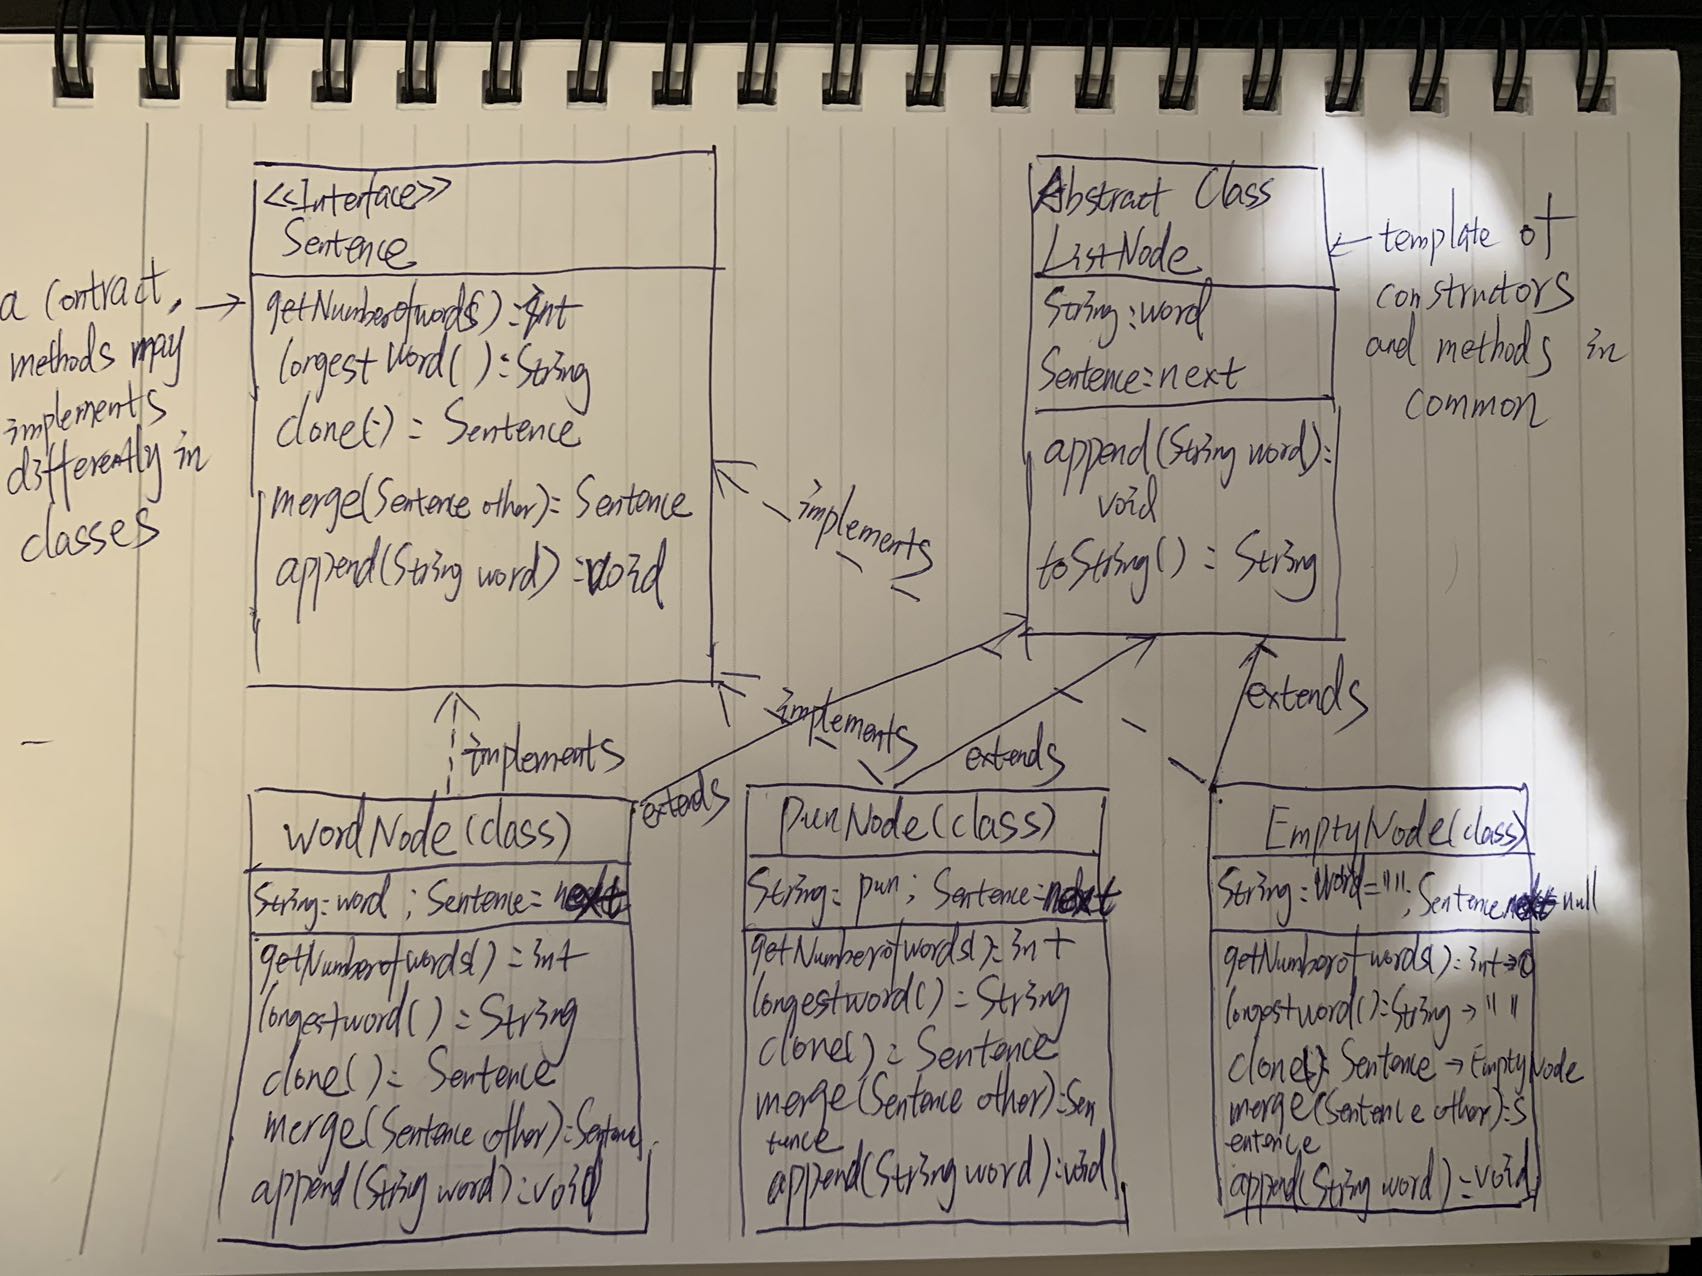 <<Interface>>
Sentence
getNumberofwords() : int
longestWord( ) : String
clone() : Sentence
merge(Sentence other) : Sentence
append(String word) : void
a contract,
methods may
implements
differently in
classes
Abstract Class
ListNode
String : word
Sentence : next
append(String word) :
void
toString() : String
template of
constructors
and methods in
common
implements
implements
implements
extends
extends
extends
wordNode(class)
String : word ; Sentence : next
getNumberofwords() : int
longestword( ) : String
clone() : Sentence
merge(Sentence other) : Sentence
append(String word) : void
punNode(class)
String : pun ; Sentence : next
getNumberofwords() : int
longestword( ) : String
clone() : Sentence
merge(Sentence other) : Sen
tence
append(String word) : void
EmptyNode(class)
String : word = "" ; Sentence next = null
getNumberofwords() : int → 0
longestword() : String → " "
clone() : Sentence → EmptyNode
merge(Sentence other) : S
entence
append(String word) : void